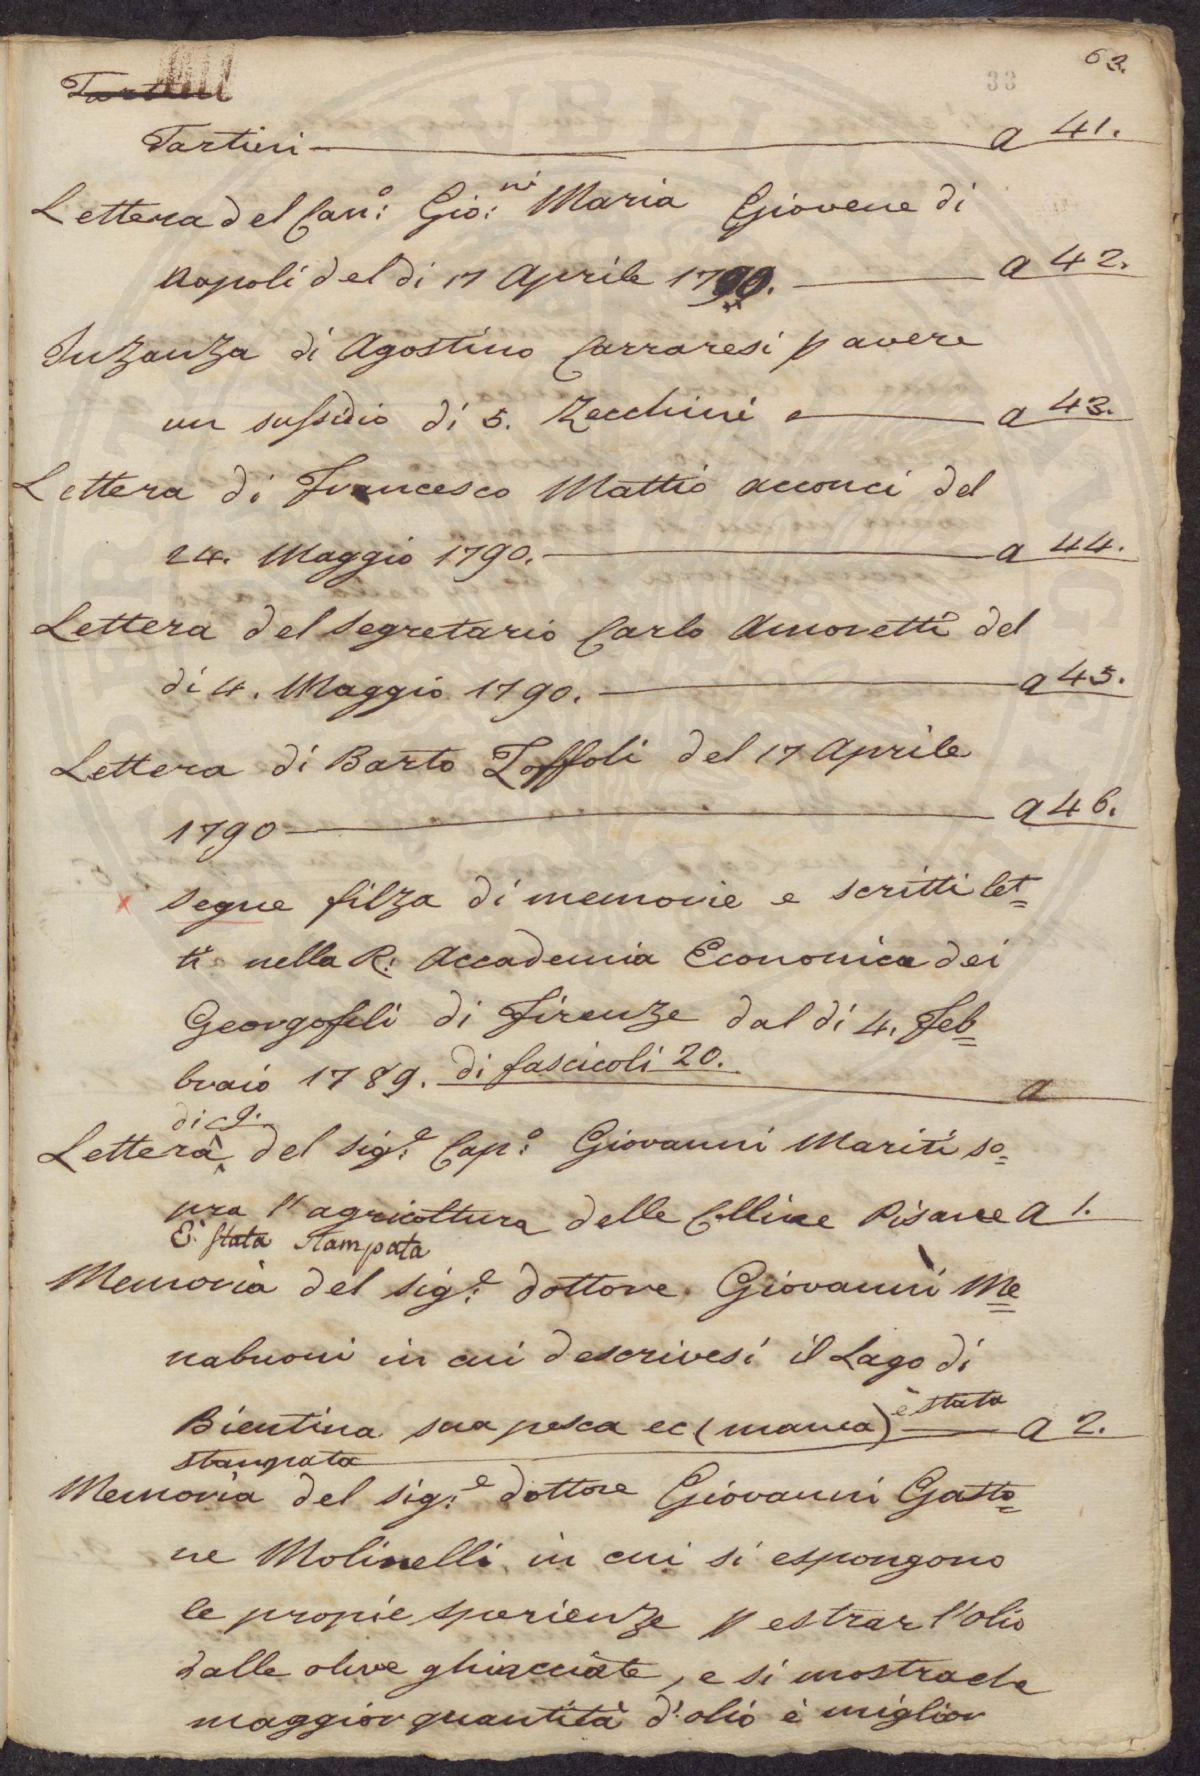 63.
33
Tartini
Tartini a 41.
Lettera del Can:o Gio:ni Maria Giovene di
Napoli del di 17 Aprile 1790. a 42.
Inzanza di Agostino Carraresi p avere
un sussidio di 5. Zecchini a 43.
Lettera di Francesco Mattio acconci del
24. Maggio 1790. a 44.
Lettera del Segretario Carlo Amoretti del
di 4. Maggio 1790. a 45.
Lettera di Barto Toffoli del 17 Aprile
1790 a 46.
x Segue filza di memorie e scritti let=
ti nella R: Accademia Economica dei
Georgofili di Firenze dal di 4. Feb=
braio 1789. di fascicoli 20. a
di c 9.
Lettera del Sig:e Cap:o Giovanni Mariti so=
pra l'agricoltura delle Colline Pisane a 1.
È stata stampata
Memoria del Sig:e dottore Giovanni Me=
nabuoni in cui descrivesi il Lago di
Bientina sua pesca ec (manca) è stata a 2.
stampata
Memoria del Sig:e dottore Giovanni Gasto=
ne Molinelli in cui si espongono
le propie sperienze p estrar l'olio
dalle olive ghiacciate, e si mostra che
maggior quantità d'olio è miglior